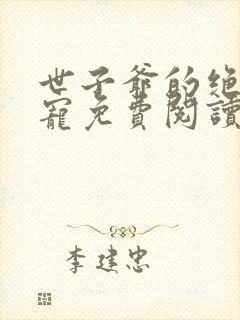 世子爷的绝
寵免費閱讀
李建忠